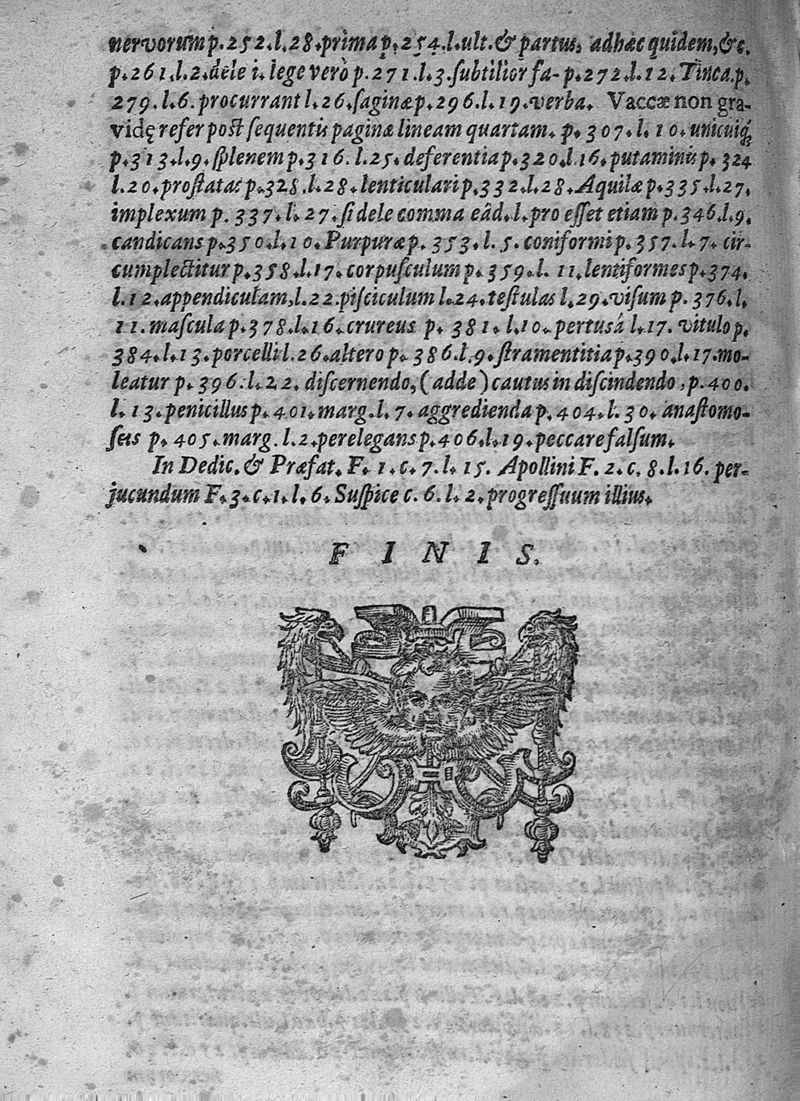 nervorum p. 252. l. 28. prima p. 254. l. ult. & partus, adhæc quidem, &c.
p. 261. l. 2. dele i. lege verò p. 271. l. 3. subtilior fa- p. 272. l. 12. Tinca. p.
279. l. 6. procurrant l. 26. saginæ p. 296. l. 19. verba. Vaccæ non gra-
vidę refer post sequentis paginæ lineam quartam. p. 307. l. 10. unicuiq́;
p. 313. l. 9. splenem p. 316. l. 25. deferentia p. 320. l. 16. putaminis p. 324
l. 20. prostatas p. 328. l. 28. lenticulari p. 332. l. 28. Aquilæ p. 335. l. 27.
implexum p. 337. l. 27. si dele comma eâd. l. pro esset etiam p. 346. l. 9.
candicans p. 350. l. 10. Purpuræ p. 353. l. 5. coniformi p. 357. l. 7. cir-
cumplectitur p. 358. l. 17. corpusculum p. 359. l. 11. lentiformes p. 374.
l. 12. appendiculam, l. 22. pisciculum l. 24. testulas l. 29. visum p. 376. l.
11. mascula p. 378. l. 16. crureus p. 381. l. 10. pertusâ l. 17. vitulo p.
384. l. 13. porcelli l. 26. altero p. 386. l. 9. stramentitia p. 390. l. 17. mo-
leatur p. 396. l. 22. discernendo, (adde) cautus in discindendo, p. 400.
l. 13. penicillus p. 401. marg. l. 7. aggredienda p. 404. l. 30. anastomo-
seis p. 405. marg. l. 2. perelegans p. 406. l. 19. peccare falsum.
In Dedic. & Præfat. F. 1. c. 7. l. 15. Apollini F. 2. c. 8. l. 16. per-
jucundum F. 3. c. 1. l. 6. Suspice c. 6. l. 2. progressuum illius.
FINIS.